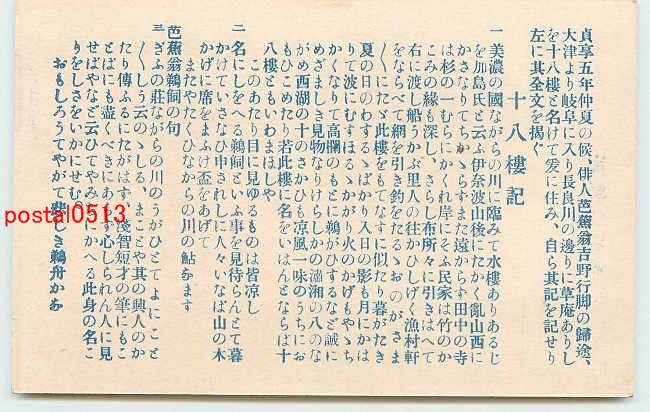 貞享五年仲夏の候、俳人芭蕉翁吉野行脚の歸途、
大津より岐阜に入り長良川の邊りに草庵ありし
を十八樓と名けて爰に住み、自ら其記を記せり
左に其全文を揭ぐ
十八樓記
一 美濃の國ながらの川に臨みて水樓ありあるじ
を加島氏と云ふ伊奈波山後にたかく亂山西に
かさなりてちかゝらずまた遠からす田中の寺
は杉の一むらにかくれ岸にそふ民家は竹のか
こみの綠も深し、さらし布所々に引きはへて
右に渡し船うかぶ里人の往かひしげく漁村軒
をならべて網を引き釣をたるゝおのがさまざま
〳〵にたゞ此樓をもてなすに似たり暮がたき
夏の日のわするゝばかり入日の影も月にかは
りて波にむすぼるゝかがり火のかげもやゝち
かくなりて高欄のもとに鵜がひするなど誠に
めざましき見物なりけらしかの瀟湘の八のな
がめ西湖の十のさかひも凉風一味のうちにお
もひこめたり若此樓に名をいはんとならば十
八樓ともいわまほしや
このあたり目に見ゆるものは皆凉し
二 名にしをへる鵜飼といふ事を見待らんとて暮
かけていさなひ申されしに人々いなば山の木
かげに席をまふけ盃をあげて
またやたくひなからの川の鮎なます
芭蕉翁鵜飼の句
三 ぎふの莊ながらの川のうがひとてよにこと
〳〵しう云のゝしる、まことや其の興人のか
たり傳ふるにたがはず、淺智短才の筆にもこ
とばにも盡くべきにあらず心しられん人に見
せばやなど云ひてやみぢにかへる此身の名こ
りをしさをいかにせむ。
おもしろうてやがて悲しき鵜舟かな
postal0513